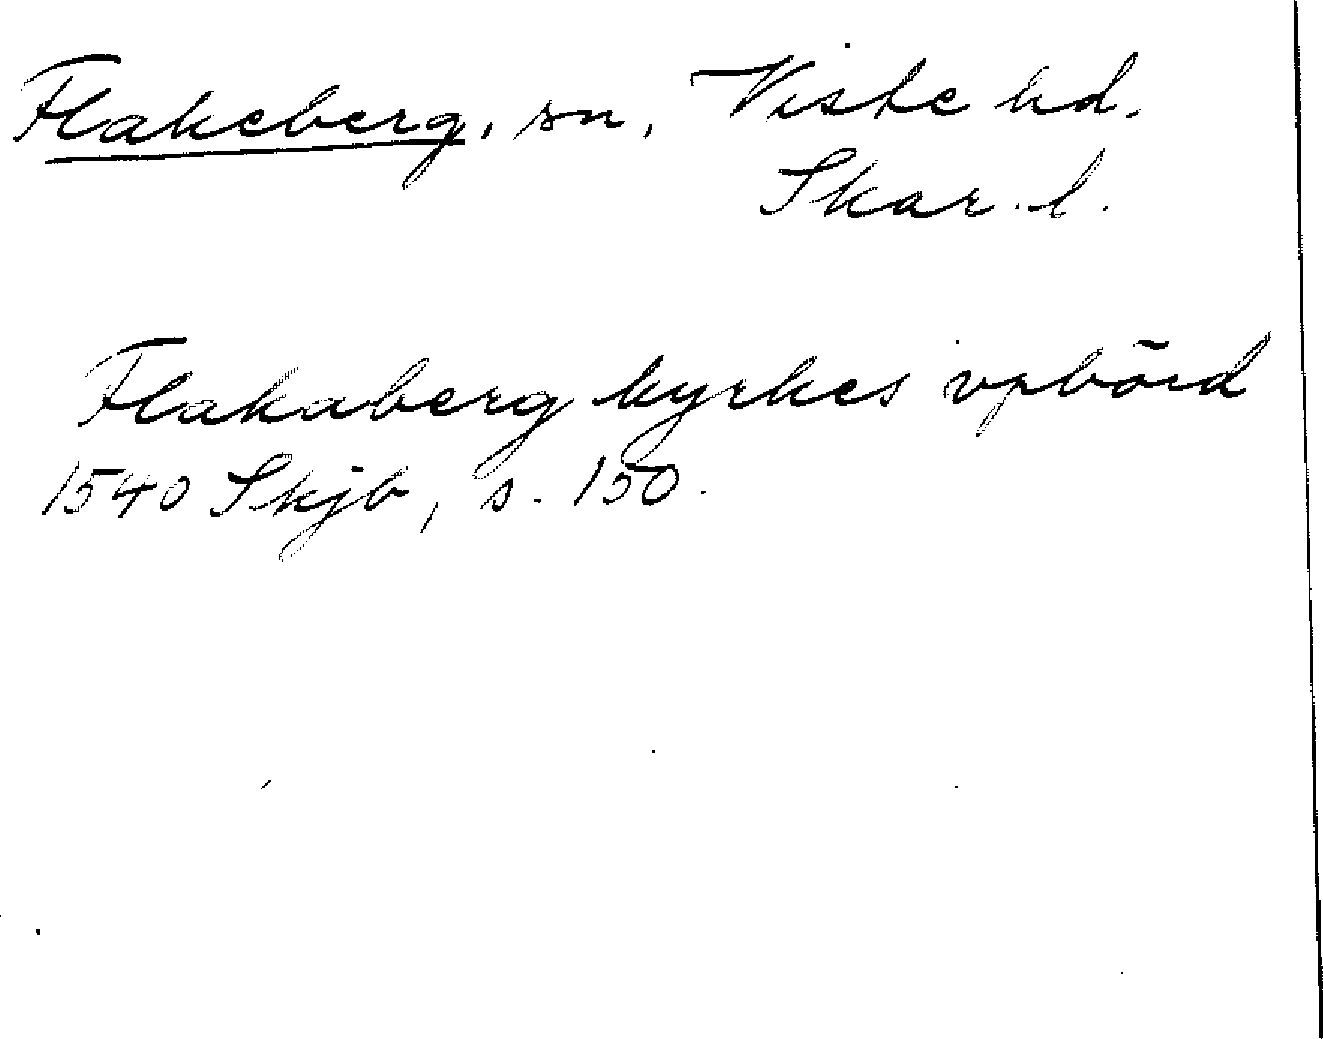 Flakeberg, sn, Viste hd.
Skar. l.
Flakaberg kyrkes vpbörd
1540 Skjb, s. 150.